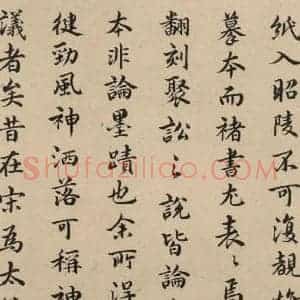 紙入昭陵不可復覩
摹本而褚書尤表〻焉
翻刻聚訟〻說皆論
本非論墨蹟也余所
健勁風神洒落可稱神
議者矣昔在宋為太
Shufaziliao.com